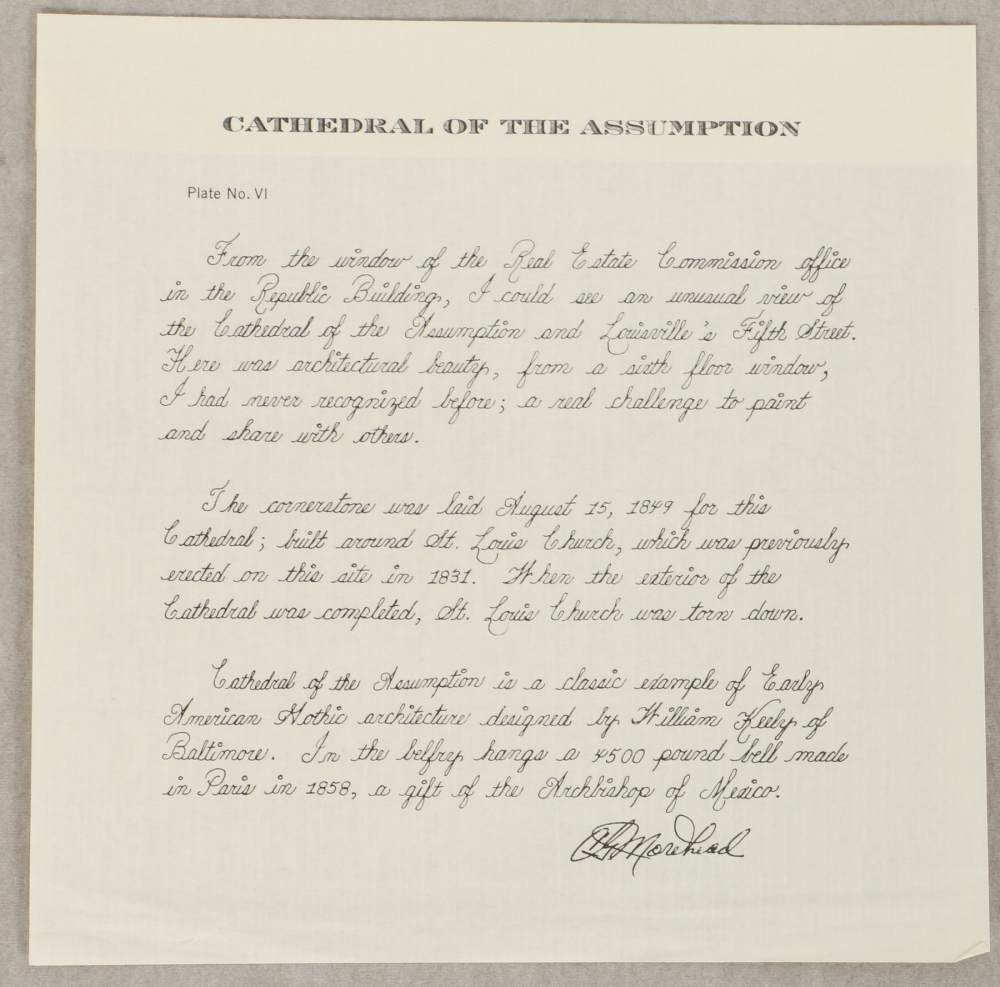 CATHEDRAL OF THE ASSUMPTION
Plate No. VI
From the window of the Real Estate Commission office
in the Republic Building, I could see an unusual view of
the Cathedral of the Assumption and Louisville's Fifth Street.
Here was architectural beauty, from a sixth floor window,
I had never recognized before; a real challenge to paint
and share with others.
The cornerstone was laid August 15, 1849 for this
Cathedral; built around St. Louis Church, which was previously
erected on this site in 1831. When the exterior of the
Cathedral was completed, St. Louis Church was torn down.
Cathedral of the Assumption is a classic example of Early
American Gothic architecture designed by William Keely of
Baltimore. In the belfry hangs a 4500 pound bell made
in Paris in 1858, a gift of the Archbishop of Mexico.
Morehead